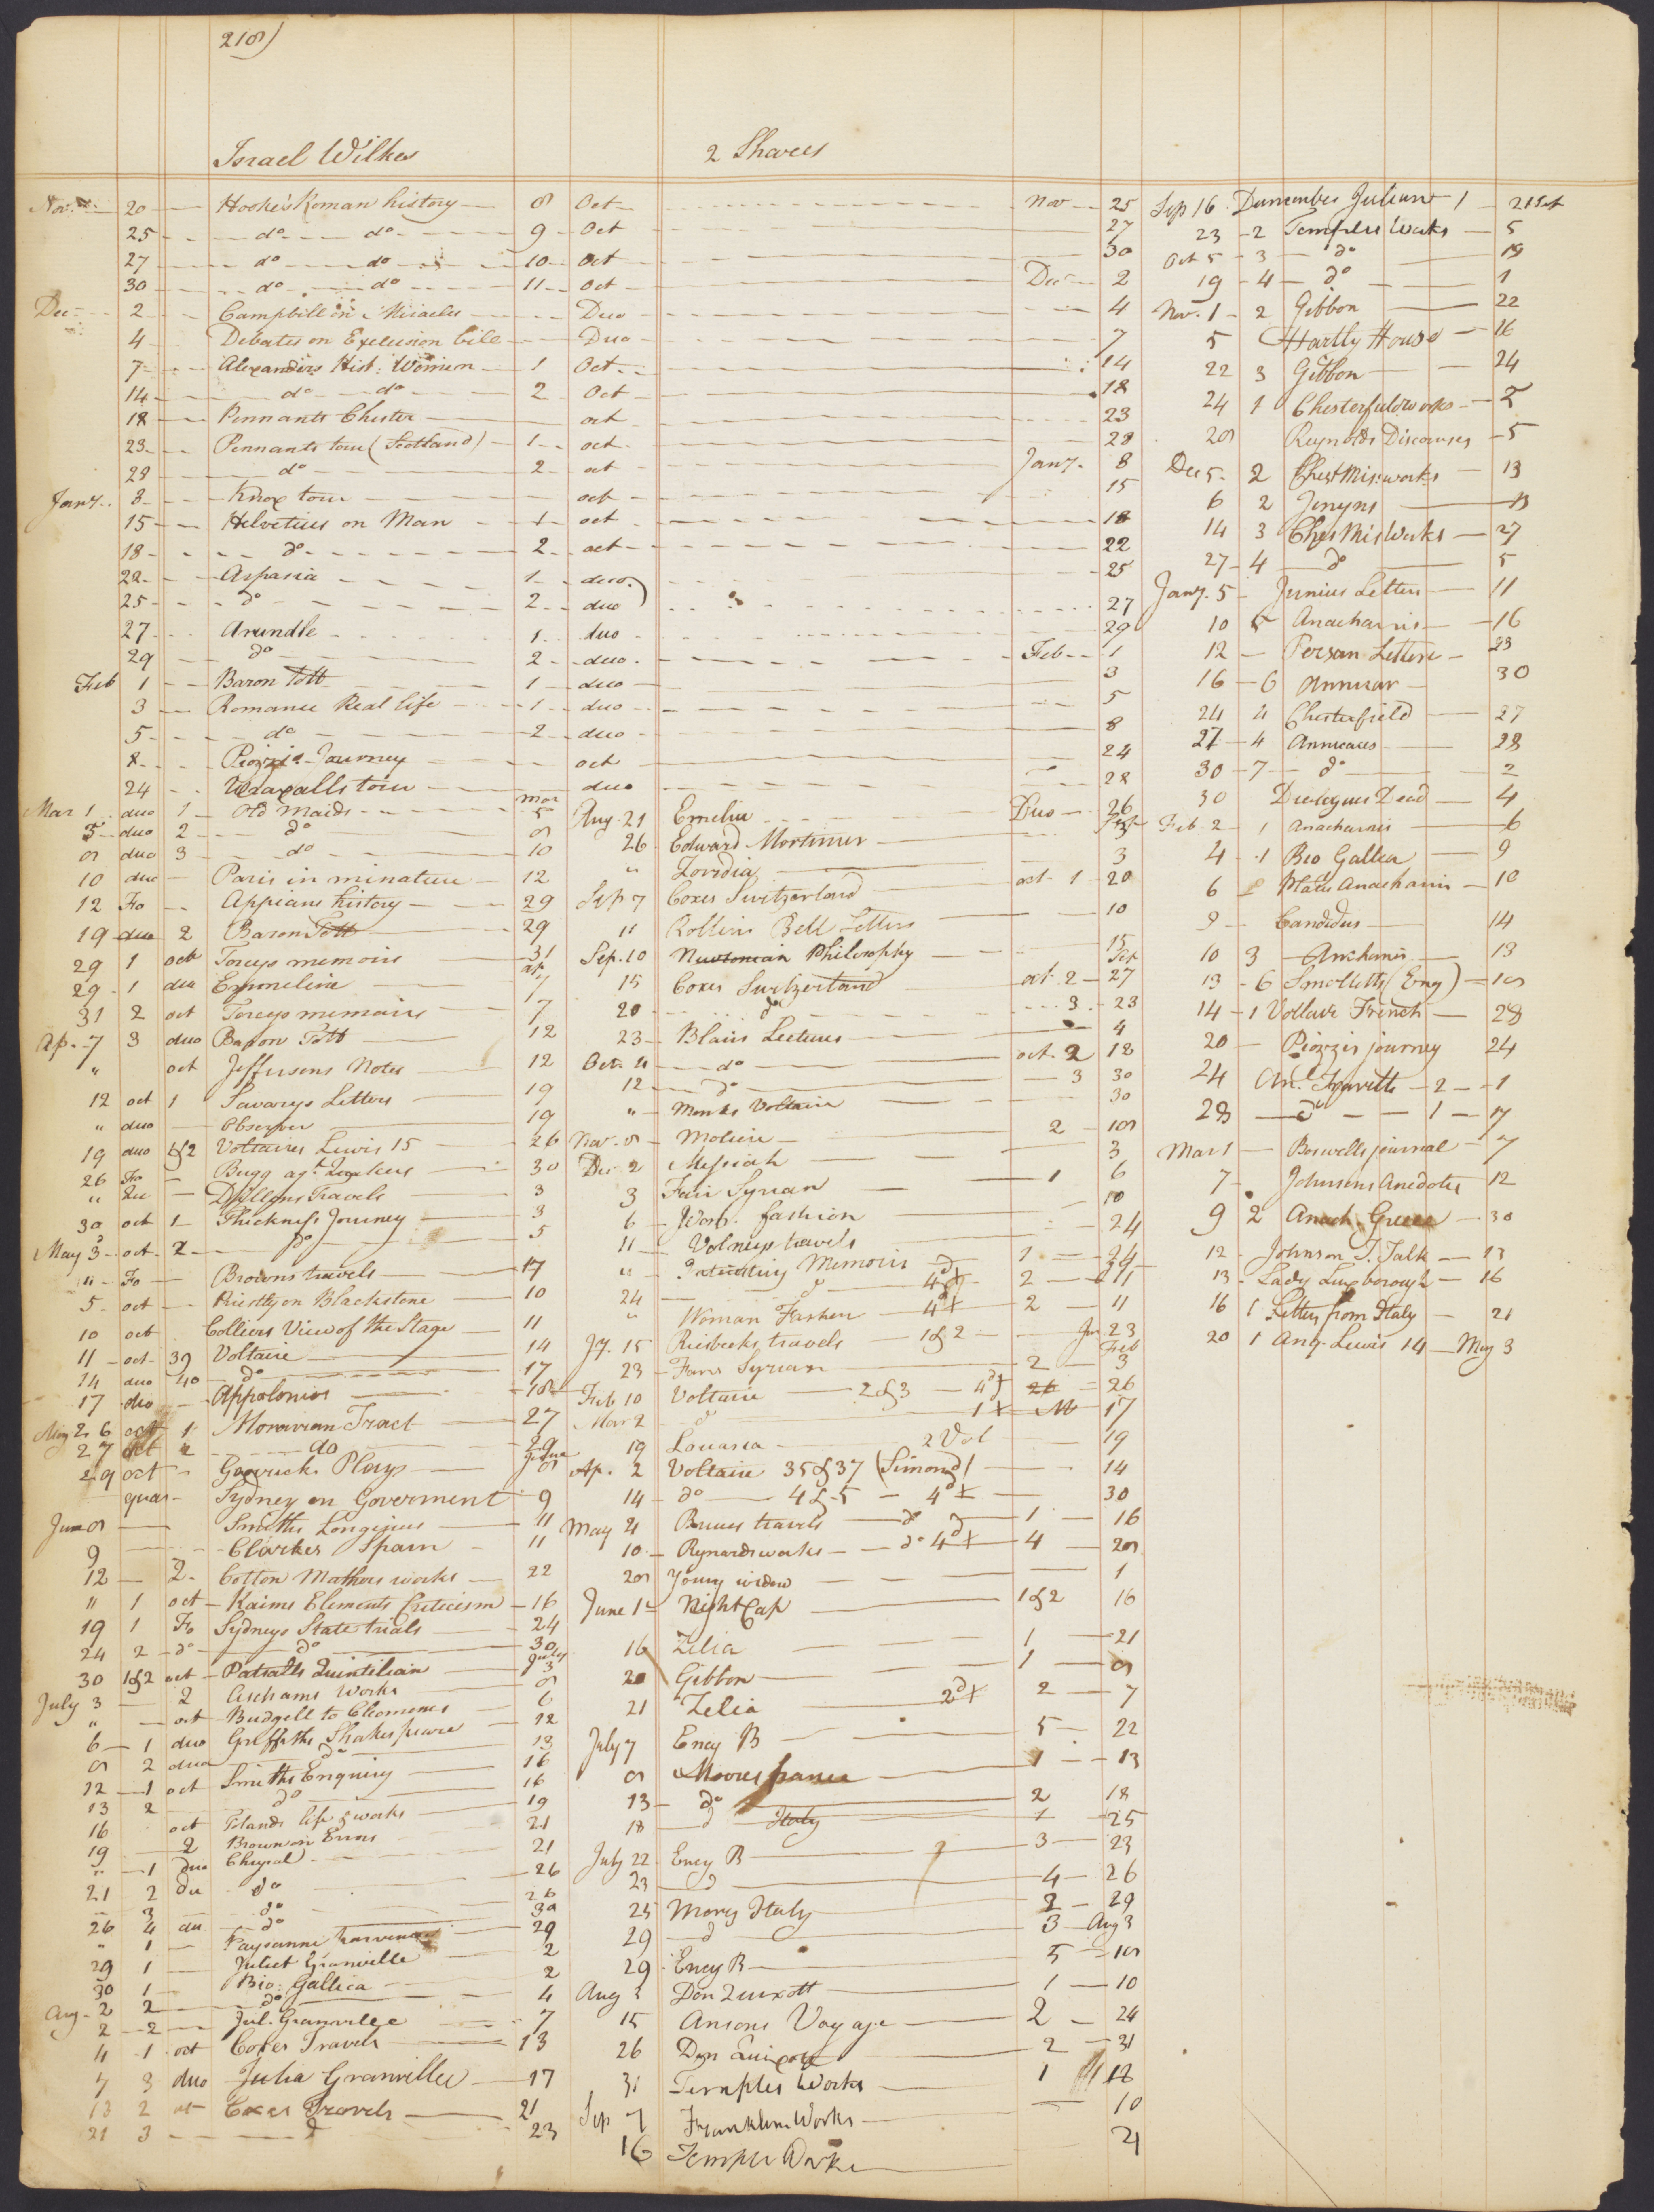 218)
Israel Wilkes 2 Shares
Nov. 20 Hooke's Roman history 8 Oct Nov 25
25 do do 9 Oct 27
27 do do 10 Oct 30
30 do do 11 Oct Dec 2
Dec 2 Campbill on Miracles Duo 4
4 Debates on Exclusion bill Duo 7
7 Alexanders Hist: Women 1 Oct 14
14 do do 2 Oct 18
18 Pennants Chester oct 23
23 Pennants tour (Scotland) 1 oct 28
28 do 2 oct Jany. 8
Jany. 8 Knox tour oct 15
15 Helvetius on Man 1 oct 18
18 do 2 oct 22
22 Aspasia 1 duo 25
25 do 2 duo 27
27 Arundle 1 duo 29
29 do 2 duo Feb 1
Feb 1 Baron Tott 1 duo 3
3 Romance Real life 1 duo 5
5 do 2 duo 8
8 Piozzis Journey oct 24
24 Wraxalls tour duo 28
Mar 1 duo 1 Old Maids Mar 5
5 duo 2 do 8
8 duo 3 do 10
10 duo Paris in minature 12
12 Fo Appians history 29
19 duo 2 Baron Tott 29
29 1 oct Torcys memoirs 31
29 1 duo Emmeline ap. 7
31 2 oct Torcys memoirs 7
Ap. 7 3 duo Baron Tott 12
" oct Jeffersons Notes 12
12 oct 1 Savarys Letters 19
" duo Observer 19
19 duo 1&2 Voltaires Lewis 15 26
26 Fo Bugg agt. Quakers 30
" Dillons Travels 3
30 oct 1 Thickness Journey 3
May 3 oct 2 do 5
" Fo Browns travels 17
5 oct Priestly on Blackstone 10
10 oct Colliers View of the Stage 11
11 oct 39 Voltaire 14
14 duo 40 do 17
17 duo Appolonius 18
May 26 oct 1 Moravian Tract 27
27 oct 2 do 29
29 oct Garrick Plays June 8
quar Sydney on Goverment 9
June 8 Smiths Longinus 11
9 Clarkes Spain 11
12 2 Cotton Mathers works 22
" 1 oct Kaims Elements Criticism 16
19 1 Fo Sydneys State trials 24
24 2 do do 30
30 1&2 oct Patsalls Quintilian July 3
July 3 2 Aschams Works 8
" oct Budgell to Cleomenes 6
6 1 duo Griffiths Shakespeare 12
8 2 duo do 13
12 1 oct Smiths Enquiry 16
13 2 do 16
16 oct Tolands life & works 19
19 2 Brown on Errors 21
" 1 duo Chrysal 21
21 2 du do 26
3 do 26
26 4 du do 30
" 1 Paysanne 29
29 1 Juliet Granville 2
30 1 Bio: Gallica 2
Aug. 2 2 do 4
2 2 Jul. Granville 7
4 1 oct Coxes Travels 13
7 3 duo Julia Granville 17
13 2 oct Coxes Travels 21
21 3 do 23
Aug. 21 Emelia Duo 26
26 Edward Mortimer Sept 3
" Zoridia 3
Sep 7 Coxes Switzerland oct 1 20
" Rollins Bell Letters 10
Sep. 10 Newtonian Philosophy 15
15 Coxes Switzerland oct 2 Sep 27
20 do 3 23
23 Blairs Lectures 4
Oct. 4 do oct. 2 12
12 do 3 30
" Monks Voltaire 30
Nov. 8 Moliere 2 18
Dec 2 Messiah 3
3 Fair Syrian 1 6
6 Wom. fashion 10
11 Volneys travels 24
" Memoirs 1 24
24 do 2 11
" Woman Fashion 2 11
Jy. 15 Riesbecks travels 1&2 Ja 23
23 Fair Syrian 2 Feb 3
Feb 10 Voltaire 2&3 26
Mar 2 do 1 17
19 Louisa 2 Vol 19
Ap. 2 Voltaire 35&37 (Simond) 14
14 do 4&5 30
May 4 Bruces travels 1 16
10 Rynards works 4 28
28 Young widow 1
June 1 Night Cap 1&2 16
16 Zelia 1 21
20 Gibbon 1 8
21 Zelia 2 7
July 7 Ency B 5 22
8 Moores france 1 13
13 do 2 18
18 do Italy 1 25
July 22 Ency B 3 23
23 do 4 26
25 Mores Italy 2 29
29 do 3 Aug 3
29 Ency B 5 18
Aug 3 Don Quixott 1 10
15 Ansons Voyage 2 24
26 Don Quixotte 2 31
31 Temples Works 1 16
Sep 7 Franklins Works 10
16 Temple Works 21
Sep 16 Julian 1 21 Sept
23 2 Temples Works 5
Oct 5 3 do 19
19 4 do 1
Nov. 1 2 Gibbon 22
5 Hartly House 16
22 3 Gibbon 24
24 1 Chesterfield works 2
28 Reynolds Discourses 5
Dec 5 2 Chest Mis: works 13
6 2 Jenyns 13
14 3 Ches Mis Works 27
27 4 do 5
Jany. 5 Junius Letters 11
10 5 Anacharsis 16
12 Persan Letters 23
16 6 Annuar 30
24 4 Chesterfield 27
27 4 Annuaus 28
30 7 do 2
30 Dialogues Dead 4
Feb. 2 1 Anacharsis 6
4 1 Bio Gallica 9
6 Plates Anacharsis 10
9 Candidus 14
10 3 Ancharsis 13
13 6 Smolletts (Eng) 18
14 1 Voltair French 28
20 Piozzis journey 24
24 An. Travells 2 1
28 do 1 7
Mar 1 Boswells journal 7
7 Johnsons Anecdotes 12
9 2 Anach. Greece 30
12 Johnson T. Talk 13
13 Lady Luxborough 16
16 1 Letters from Italy 21
20 1 Ang. Lewis 14 May 3